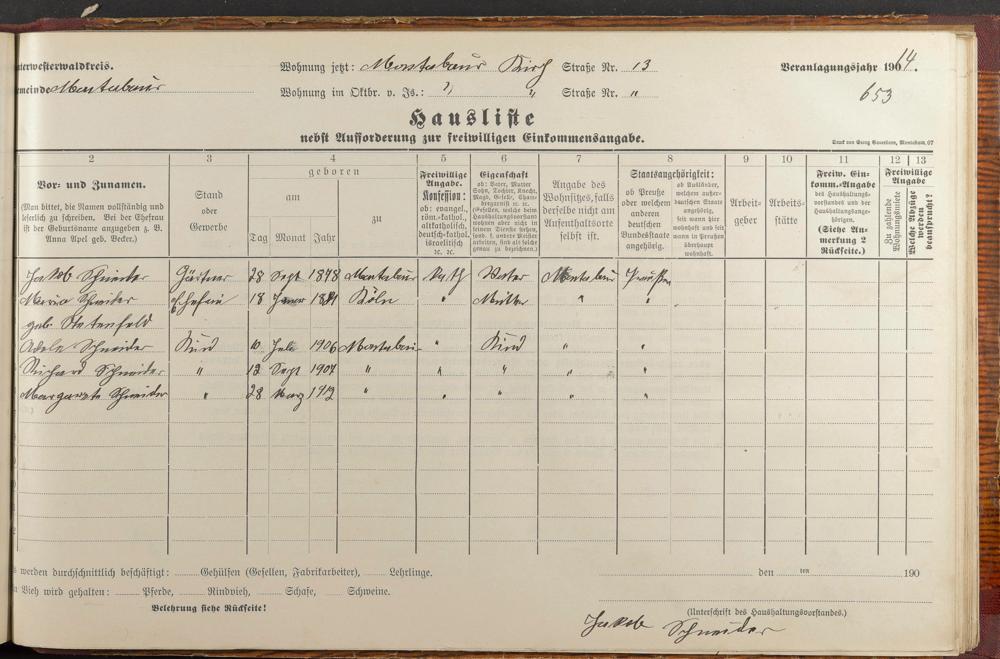 nterwesterwaldkreis. Wohnung jetzt: Montabaur Kirch Straße Nr. 13 Veranlagungsjahr 1914.
emeinde Montabaur Wohnung im Oktbr. v. Js.: " " Straße Nr. " 653
Hausliste
nebst Aufforderung zur freiwilligen Einkommensangabe.
2 3 4 5 6 7 8 9 10 11 12 13
Vor- und Zunamen.
(Man bittet, die Namen vollständig und
leserlich zu schreiben. Bei der Ehefrau
ist der Geburtsname anzugeben z. B.
Anna Apel geb. Becker.)
Stand
oder
Gewerbe
geboren
am
Tag Monat Jahr
zu
Freiwillige
Angabe.
Konfession:
ob: evangel.,
röm.-kathol.,
altkatholisch,
deutsch-kathol.
israelitisch
ec. ec.
Eigenschaft
ob: Vater, Mutter
Sohn, Tochter, Knecht,
Magd, Geselle, Cham-
bregarnist ec. ec.
(Gesellen, welche beim
Haushaltungsvorstand
wohnen aber nicht in
seinem Dienste stehen,
und f. andere Meister
arbeiten, sind als solche
genau zu bezeichnen.)
Angabe des
Wohnsitzes, falls
derselbe nicht am
Aufenthaltsorte
selbst ist.
Staatsangehörigkeit:
ob Preuße
oder welchem
anderen
deutschen
Bundesstaate
angehörig.
ob Ausländer,
welchem außer-
deutschen Staate
angehörig,
seit wann hier
wohnhaft und seit
wann in Preußen
überhaupt
wohnhaft.
Arbeit-
geber
Arbeits-
stätte
Freiw. Ein-
komm.-Angabe
des Haushaltungs-
vorstandes und der
Haushaltungsange-
hörigen.
(Siehe An-
merkung 2
Rückseite.)
Freiwillige
Angabe
Zu zahlende
Wohnungsmiete
Welche Abzüge
werden
beansprucht?
Jakob Schneider Gärtner 28 Sept 1878 Montabaur Kath Vater Montabaur Preußen
Maria Schneider Ehefrau 18 Januar 1881 Köln " Mutter " "
geb. Statenfeld
Adele Schneider Kind 10 Juli 1906 Montabaur " Kind " "
Richard Schneider " 12 Sept 1907 " " " " "
Margarete Schneider " 28 März 1912 " " " " "
s werden durchschnittlich beschäftigt: Gehülfen (Gesellen, Fabrikarbeiter), Lehrlinge. den ten 190
n Vieh wird gehalten: Pferde, Rindvieh, Schafe, Schweine.
Belehrung siehe Rückseite!
(Unterschrift des Haushaltungsvorstandes.)
Jakob Schneider